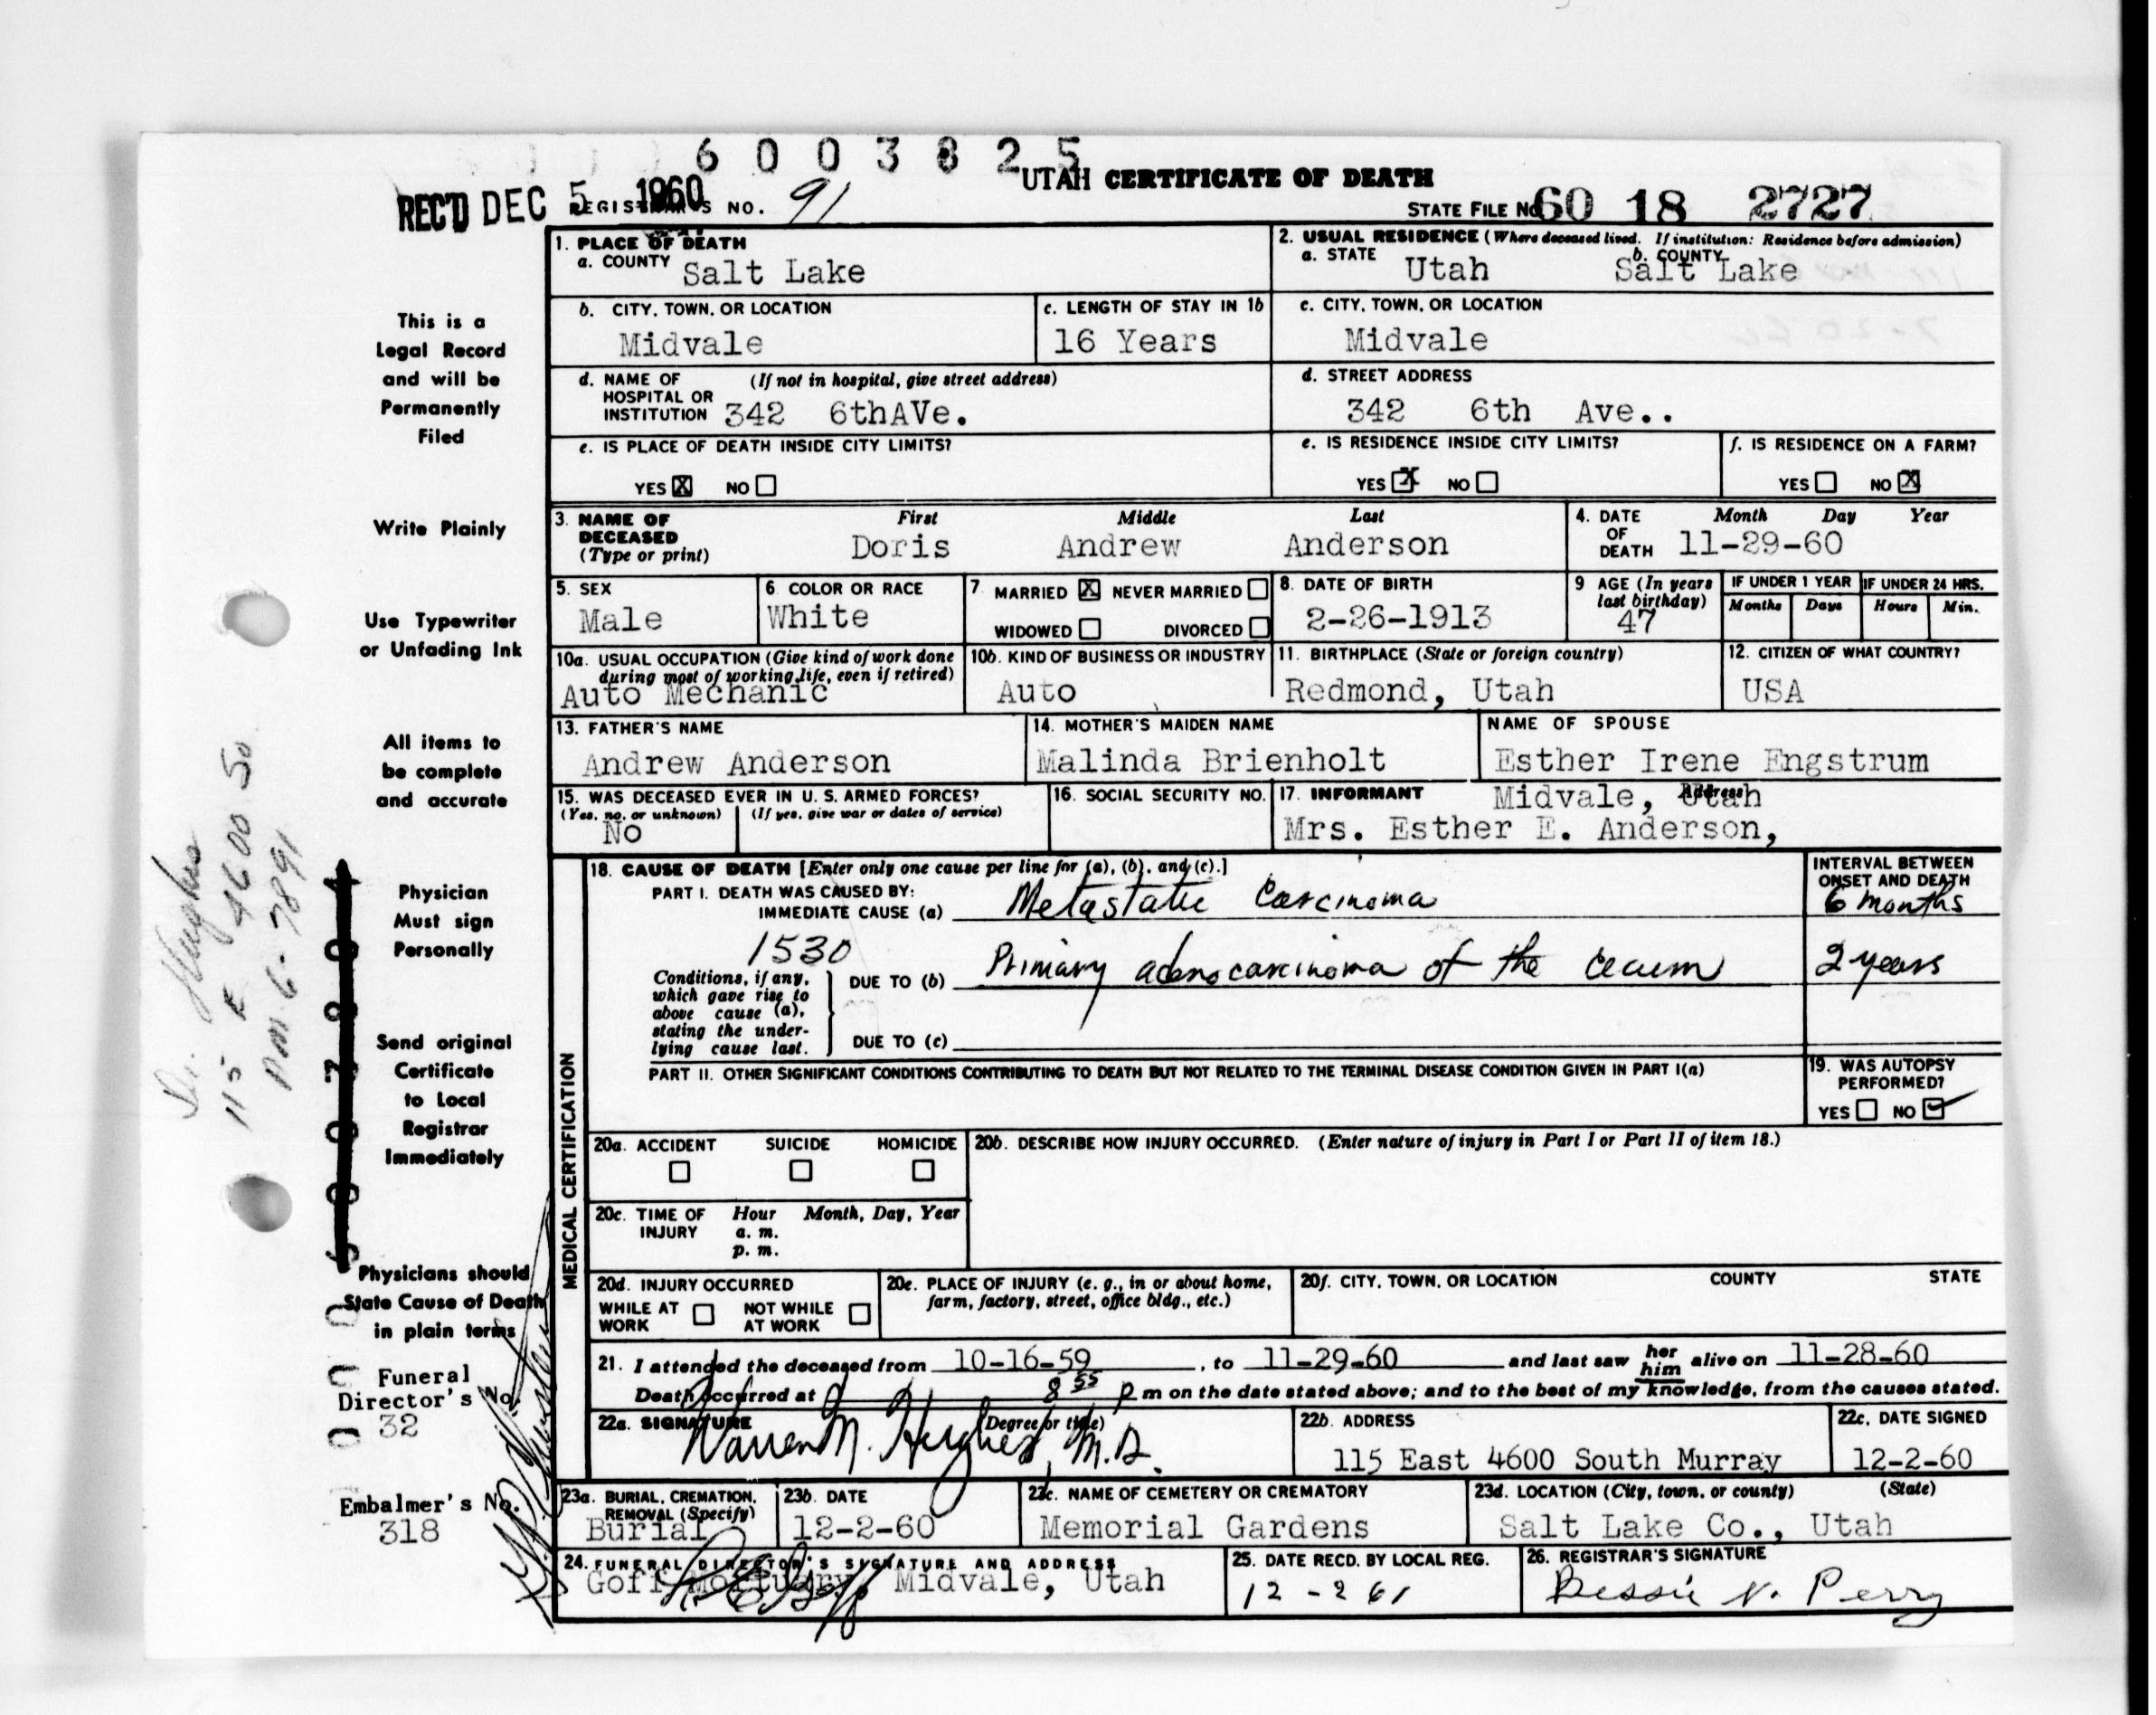 6 0 0 3 8 2 5
UTAH CERTIFICATE OF DEATH
REC'D DEC 5 1960 REGISTRAR'S NO. 91
STATE FILE NO. 60 18 2727
1. PLACE OF DEATH
a. COUNTY Salt Lake
2. USUAL RESIDENCE (Where deceased lived. If institution: Residence before admission)
a. STATE Utah b. COUNTY Salt Lake
b. CITY, TOWN, OR LOCATION
Midvale
c. LENGTH OF STAY IN 1b
16 Years
c. CITY, TOWN, OR LOCATION
Midvale
d. NAME OF HOSPITAL OR INSTITUTION (If not in hospital, give street address)
342 6thAVe.
d. STREET ADDRESS
342 6th Ave..
e. IS PLACE OF DEATH INSIDE CITY LIMITS?
YES X NO
e. IS RESIDENCE INSIDE CITY LIMITS?
YES X NO
f. IS RESIDENCE ON A FARM?
YES NO X
3. NAME OF DECEASED (Type or print)
First Middle Last
Doris Andrew Anderson
4. DATE OF DEATH Month Day Year
11-29-60
5. SEX
Male
6. COLOR OR RACE
White
7. MARRIED X NEVER MARRIED
WIDOWED DIVORCED
8. DATE OF BIRTH
2-26-1913
9 AGE (In years last birthday)
47
IF UNDER 1 YEAR IF UNDER 24 HRS.
Months Days Hours Min.
10a. USUAL OCCUPATION (Give kind of work done during most of working life, even if retired)
Auto Mechanic
10b. KIND OF BUSINESS OR INDUSTRY
Auto
11. BIRTHPLACE (State or foreign country)
Redmond, Utah
12. CITIZEN OF WHAT COUNTRY?
USA
13. FATHER'S NAME
Andrew Anderson
14. MOTHER'S MAIDEN NAME
Malinda Brienholt
NAME OF SPOUSE
Esther Irene Engstrum
15. WAS DECEASED EVER IN U. S. ARMED FORCES?
(Yes, no, or unknown) (If yes, give war or dates of service)
No
16. SOCIAL SECURITY NO.
17. INFORMANT Address
Midvale, Utah
Mrs. Esther E. Anderson,
MEDICAL CERTIFICATION
18. CAUSE OF DEATH [Enter only one cause per line for (a), (b), and (c).]
PART I. DEATH WAS CAUSED BY:
IMMEDIATE CAUSE (a) Metastatic Carcinoma
INTERVAL BETWEEN ONSET AND DEATH
6 months
1530
Conditions, if any, which gave rise to above cause (a), stating the underlying cause last.
DUE TO (b) Primary adenocarcinoma of the cecum
2 years
DUE TO (c)
PART II. OTHER SIGNIFICANT CONDITIONS CONTRIBUTING TO DEATH BUT NOT RELATED TO THE TERMINAL DISEASE CONDITION GIVEN IN PART I(a)
19. WAS AUTOPSY PERFORMED?
YES NO ✓
20a. ACCIDENT SUICIDE HOMICIDE
20b. DESCRIBE HOW INJURY OCCURRED. (Enter nature of injury in Part I or Part II of item 18.)
20c. TIME OF INJURY Hour Month, Day, Year
a. m.
p. m.
20d. INJURY OCCURRED
WHILE AT WORK NOT WHILE AT WORK
20e. PLACE OF INJURY (e. g., in or about home, farm, factory, street, office bldg., etc.)
20f. CITY, TOWN, OR LOCATION COUNTY STATE
21. I attended the deceased from 10-16-59, to 11-29-60 and last saw her him alive on 11-28-60
Death occurred at 8 55 p m on the date stated above; and to the best of my knowledge, from the causes stated.
22a. SIGNATURE (Degree or title)
Warren M. Hughes, M.D.
22b. ADDRESS
115 East 4600 South Murray
22c. DATE SIGNED
12-2-60
23a. BURIAL, CREMATION, REMOVAL (Specify)
Burial
23b. DATE
12-2-60
23c. NAME OF CEMETERY OR CREMATORY
Memorial Gardens
23d. LOCATION (City, town, or county) (State)
Salt Lake Co., Utah
24. FUNERAL DIRECTOR'S SIGNATURE AND ADDRESS
Goff Mortuary, Midvale, Utah
25. DATE RECD. BY LOCAL REG.
12 - 2 61
26. REGISTRAR'S SIGNATURE
Bessie N. Perry
This is a
Legal Record
and will be
Permanently
Filed
Write Plainly
Use Typewriter
or Unfading Ink
All items to
be complete
and accurate
Physician
Must sign
Personally
Send original
Certificate
to Local
Registrar
Immediately
Physicians should
State Cause of Death
in plain terms
Funeral
Director's No.
32
Embalmer's No.
318
Dr. Hughes
115 E 4600 So